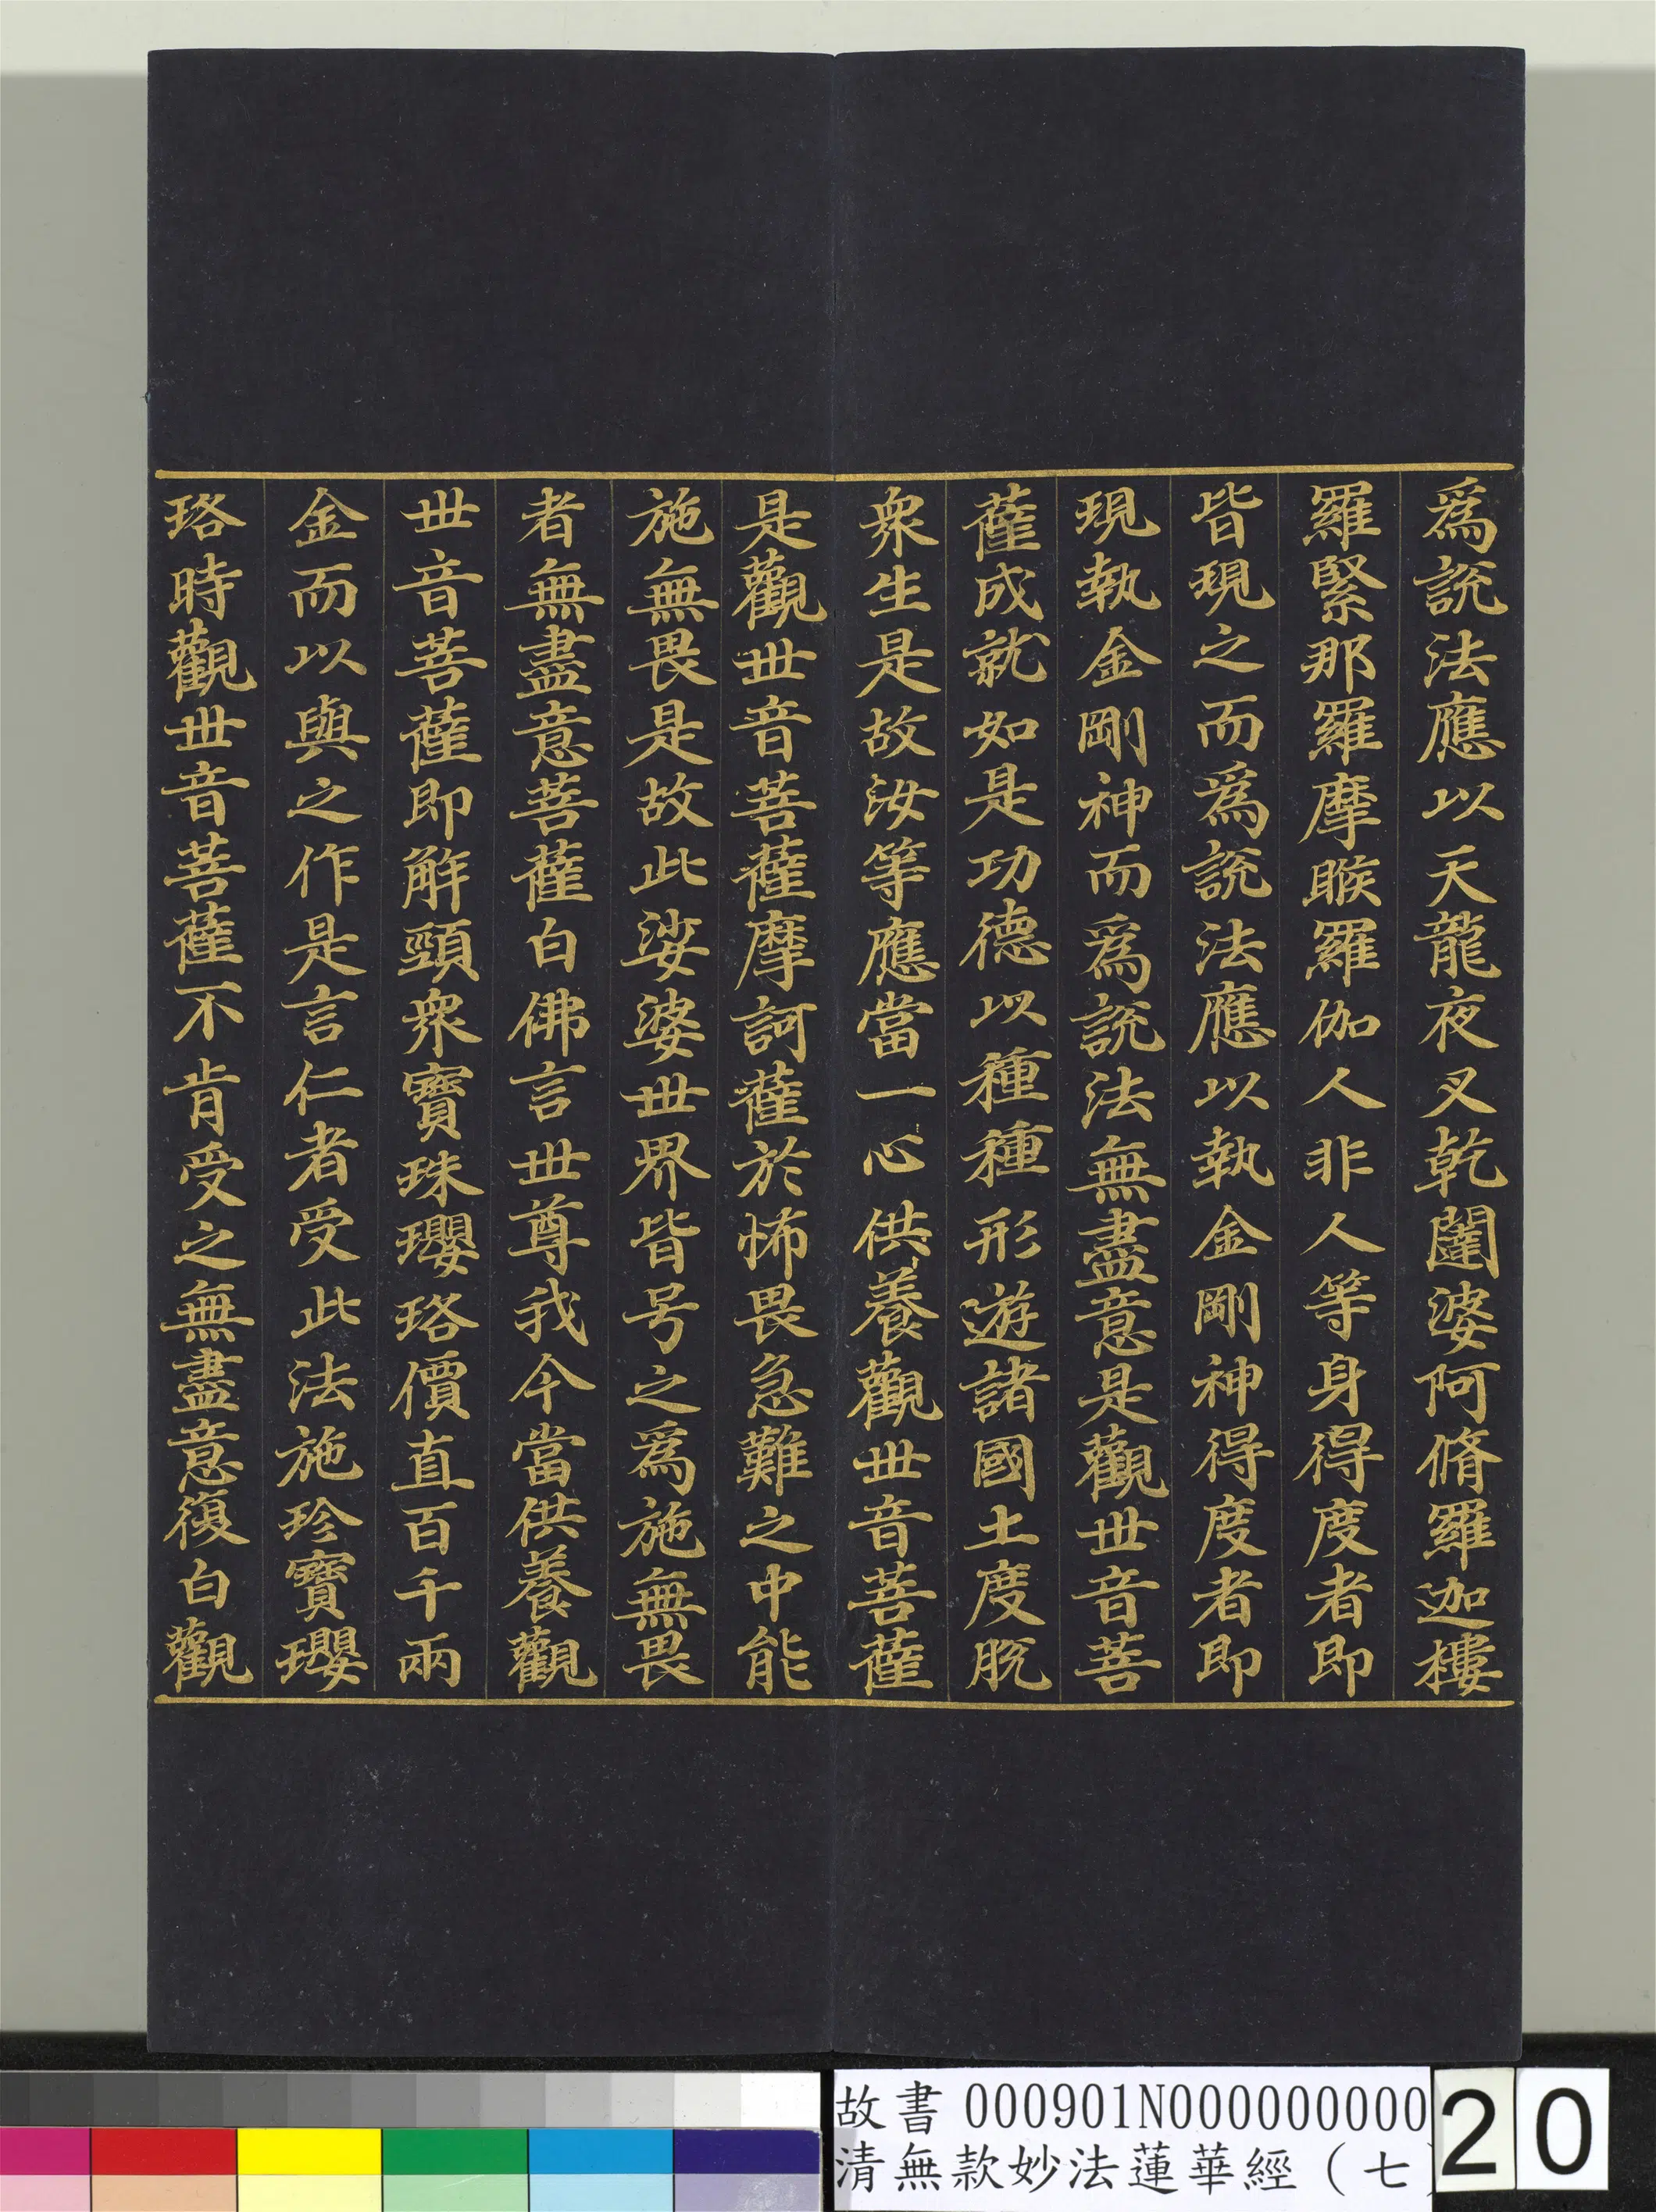 爲說法應以天龍夜叉乾闥婆阿脩羅迦樓
羅緊那羅摩睺羅伽人非人等身得度者即
皆現之而爲說法應以執金剛神得度者即
現執金剛神而爲說法無盡意是觀世音菩
薩成就如是功德以種種形遊諸國土度脫
衆生是故汝等應當一心供養觀世音菩薩
是觀世音菩薩摩訶薩於怖畏急難之中能
施無畏是故此娑婆世界皆号之爲施無畏
者無盡意菩薩白佛言世尊我今當供養觀
世音菩薩即解頸衆寶珠瓔珞價直百千兩
金而以與之作是言仁者受此法施珍寶瓔
珞時觀世音菩薩不肯受之無盡意復白觀
故書 000901N000000000
清無款妙法蓮華經（七
20